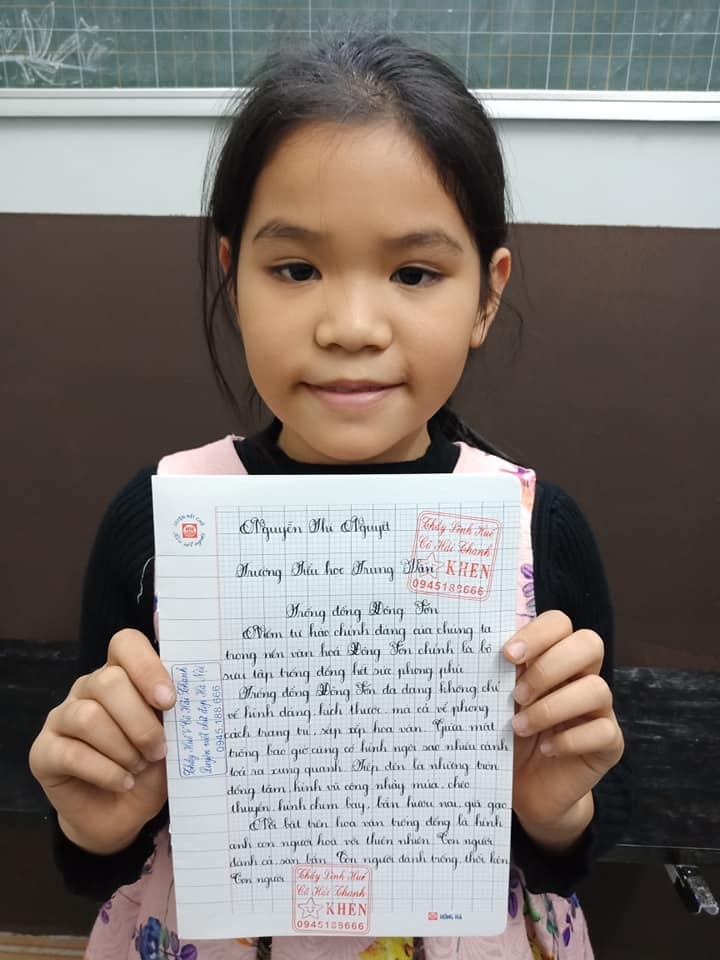 Nguyễn Thị Nguyệt
Trường Tiểu học Trung Văn
Thầy Linh Huế
Cô Hải Thanh
KHEN
0945188666
Trống đồng Đông Sơn
Niềm tự hào chính đáng của chúng ta
trong nền văn hoá Đông Sơn chính là bộ
sưu tập trống đồng hết sức phong phú
Trống đồng Đông Sơn đa dạng không chỉ
về hình dáng, kích thước, mà cả về phong
cách trang trí, sắp xếp hoa văn. Giữa mặt
trống bao giờ cũng có hình ngôi sao nhiều cánh
toả ra xung quanh. Tiếp đến là những
đồng tâm, hình vũ công nhảy múa, chèo
thuyền, hình chim bay, hươu nai, gạc
Nổi bật trên hoa văn trống đồng là hình
ảnh con người hoà với thiên nhiên. Con người
đánh cá, săn bắn. Con người đánh trống, thổi kèn
Con người
Thầy Huế & Cô Hải Thanh
Luyện viết chữ đẹp Hà Nội
0945.188.666
Thầy Linh Huế
Cô Hải Thanh
KHEN
0945188666
HỒNG HÀ